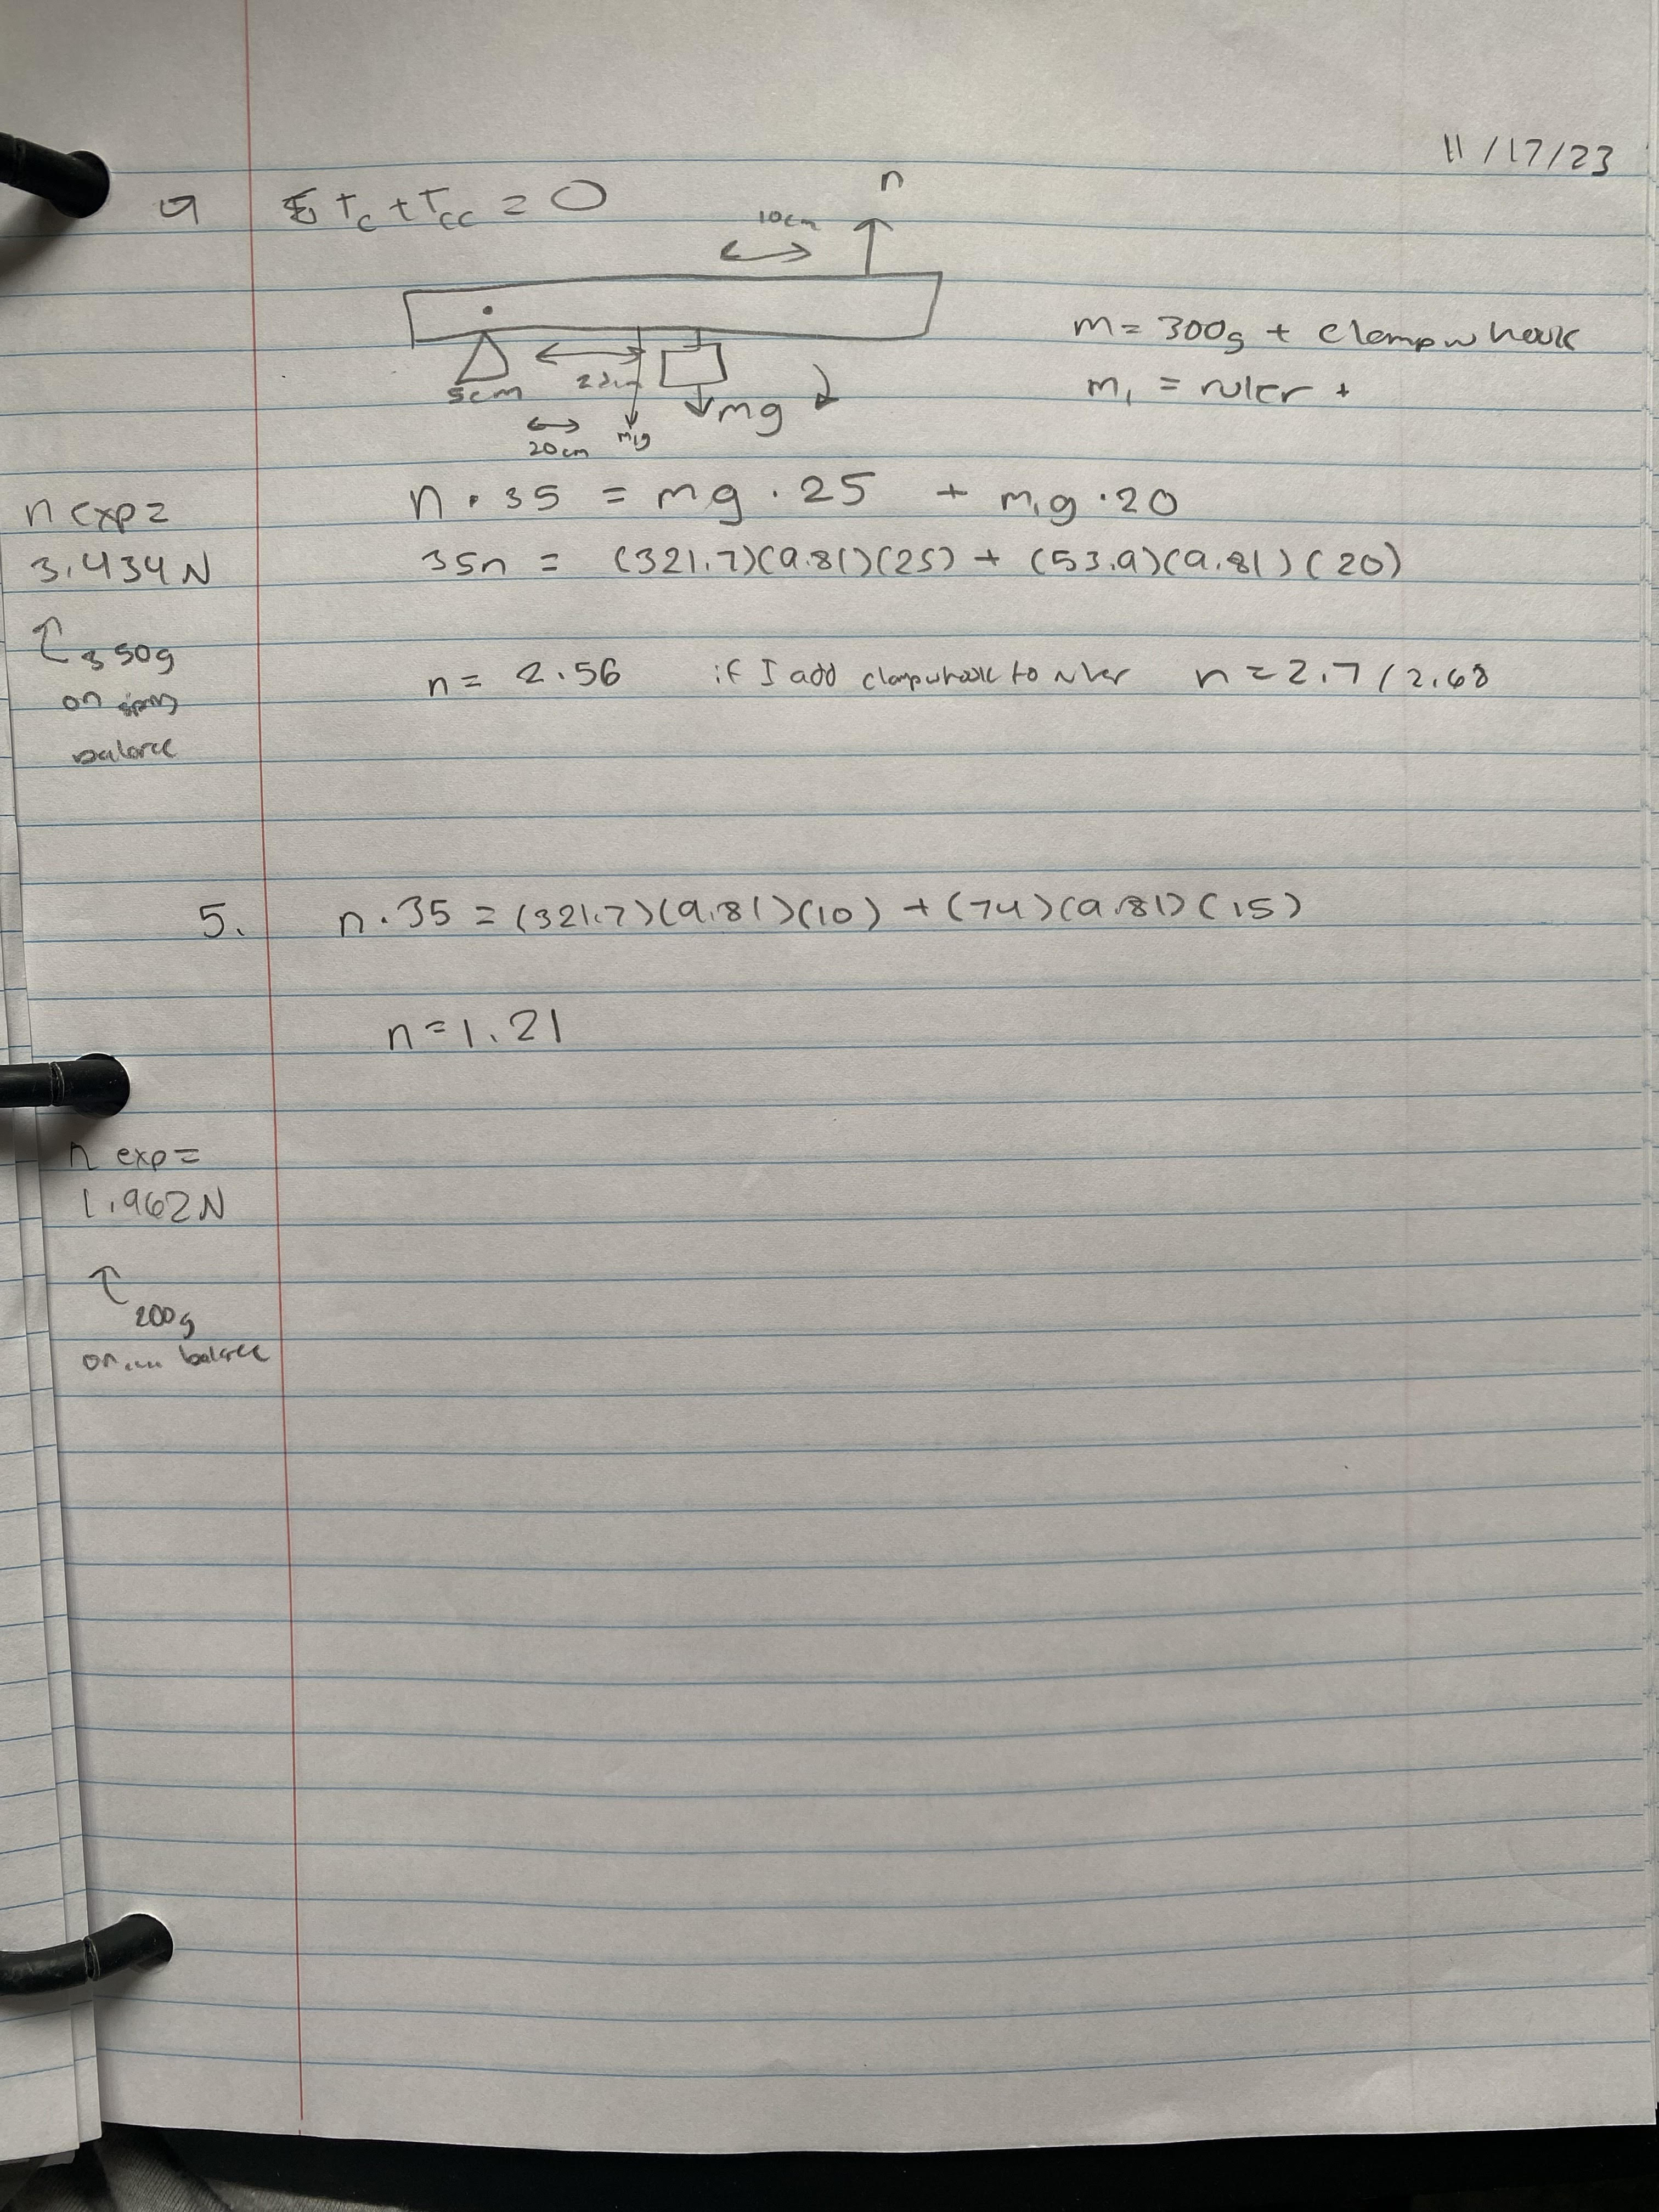 11/17/23
Σ τc + τcc = 0
n
10cm
m = 300g + clamp w hook
m₁ = ruler +
5cm
mg
20cm
m₁g
n exp =
3.434N
350g
on spring
balance
n · 35 = mg · 25 + m₁g · 20
35n = (321.7)(9.81)(25) + (53.9)(9.81)(20)
n = 2.56 if I add clamp w hook to ruler n = 2.7 / 2.68
5. n · 35 = (321.7)(9.81)(10) + (74)(9.81)(15)
n = 1.21
n exp =
1.962N
200g
on balance